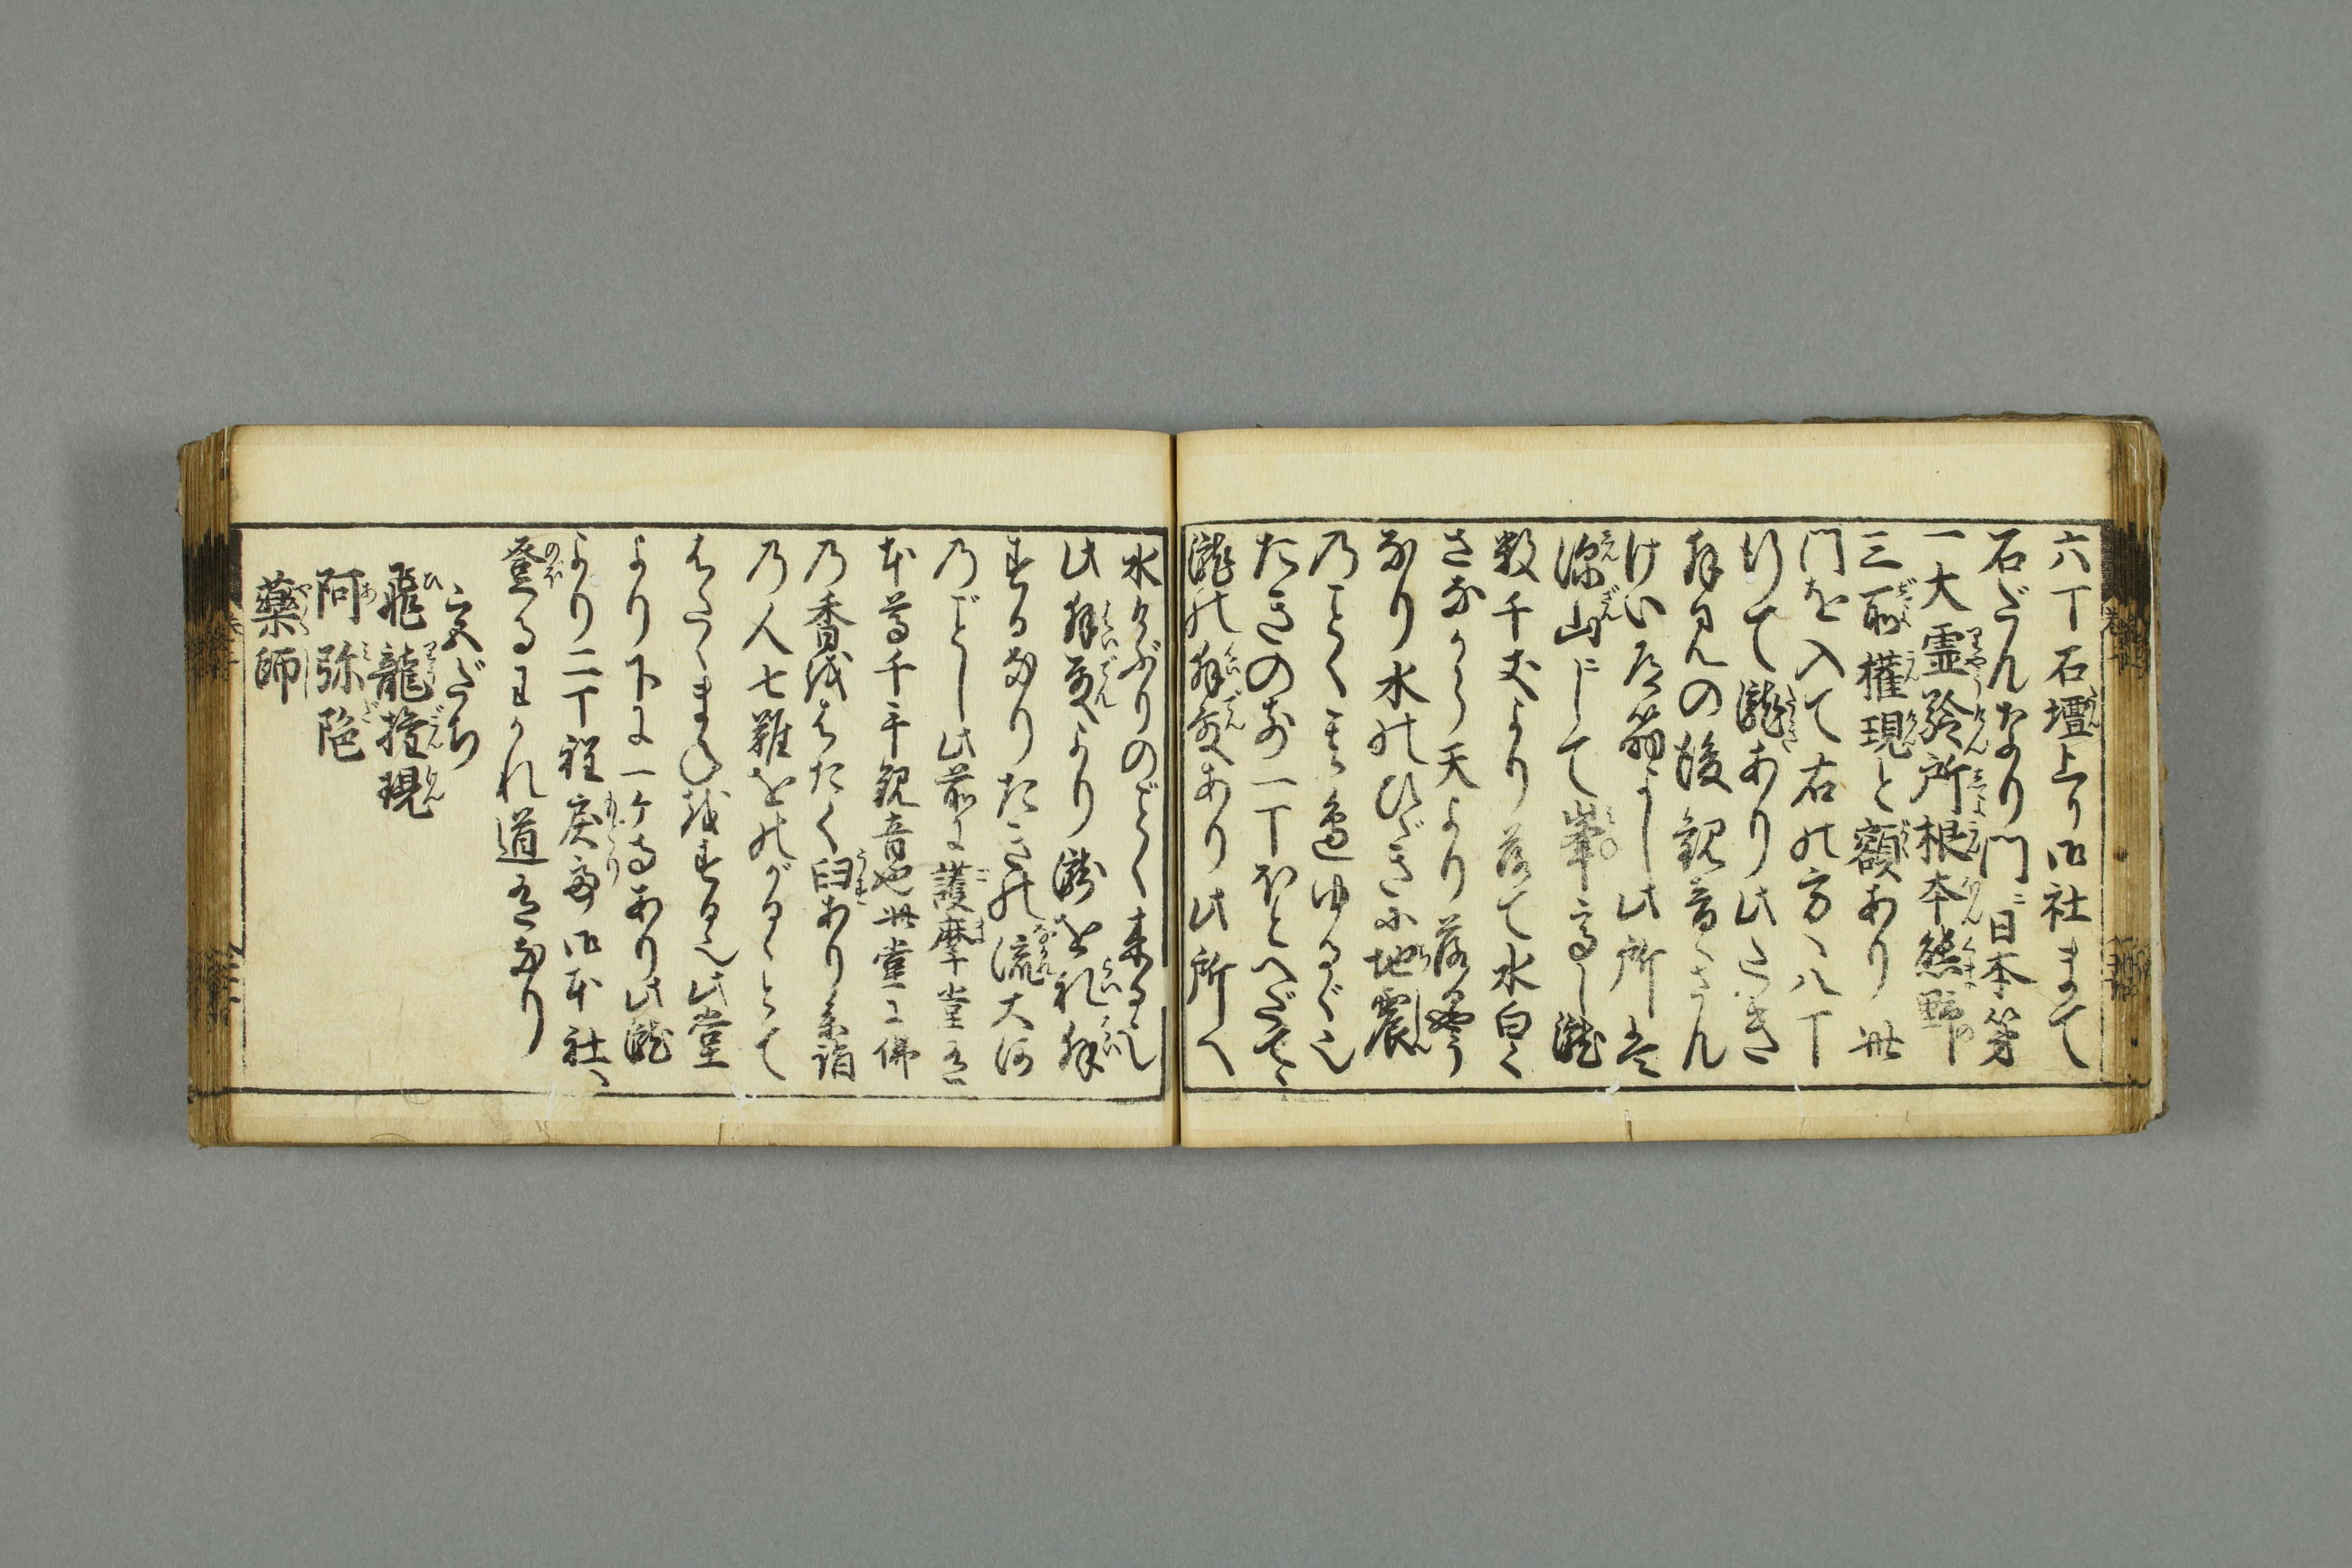 六丁石壇上り御社まて
石だんなり門ニ日本第
一大霊験所根本熊野
三所権現と額あり此
門を入て右の方へ八丁
行て瀧あり此たき
拝見の後観音へさん
けい道筋よし此所は
深山にして峯高し瀧
数千丈より落て水白く
さながら天より落る
なり水のひゞき地震
のごとく
たきの前一丁ほどへだてゝ
瀧の拝殿あり此所へ
水けぶりのごとく来る也
此拝殿より瀧を礼拝
するなりたきの流大河
のごとし此前に護摩堂有
本尊千手観音也此堂に佛
の香をはたく臼あり参詣
の人七難をのがるゝとて
はたくまねをする也此堂
より下に一ケ寺あり此瀧
より二丁程戻り御本社へ
登るわかれ道有なり
飛龍権現
阿弥陀
薬師